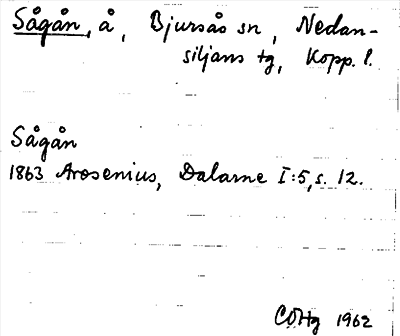 Sågån, å, Bjursås sn, Nedan-
siljans tg, Kopp. l.
Sågån
1863 Arosenius, Dalarne I:5, s. 12.
COHg 1962